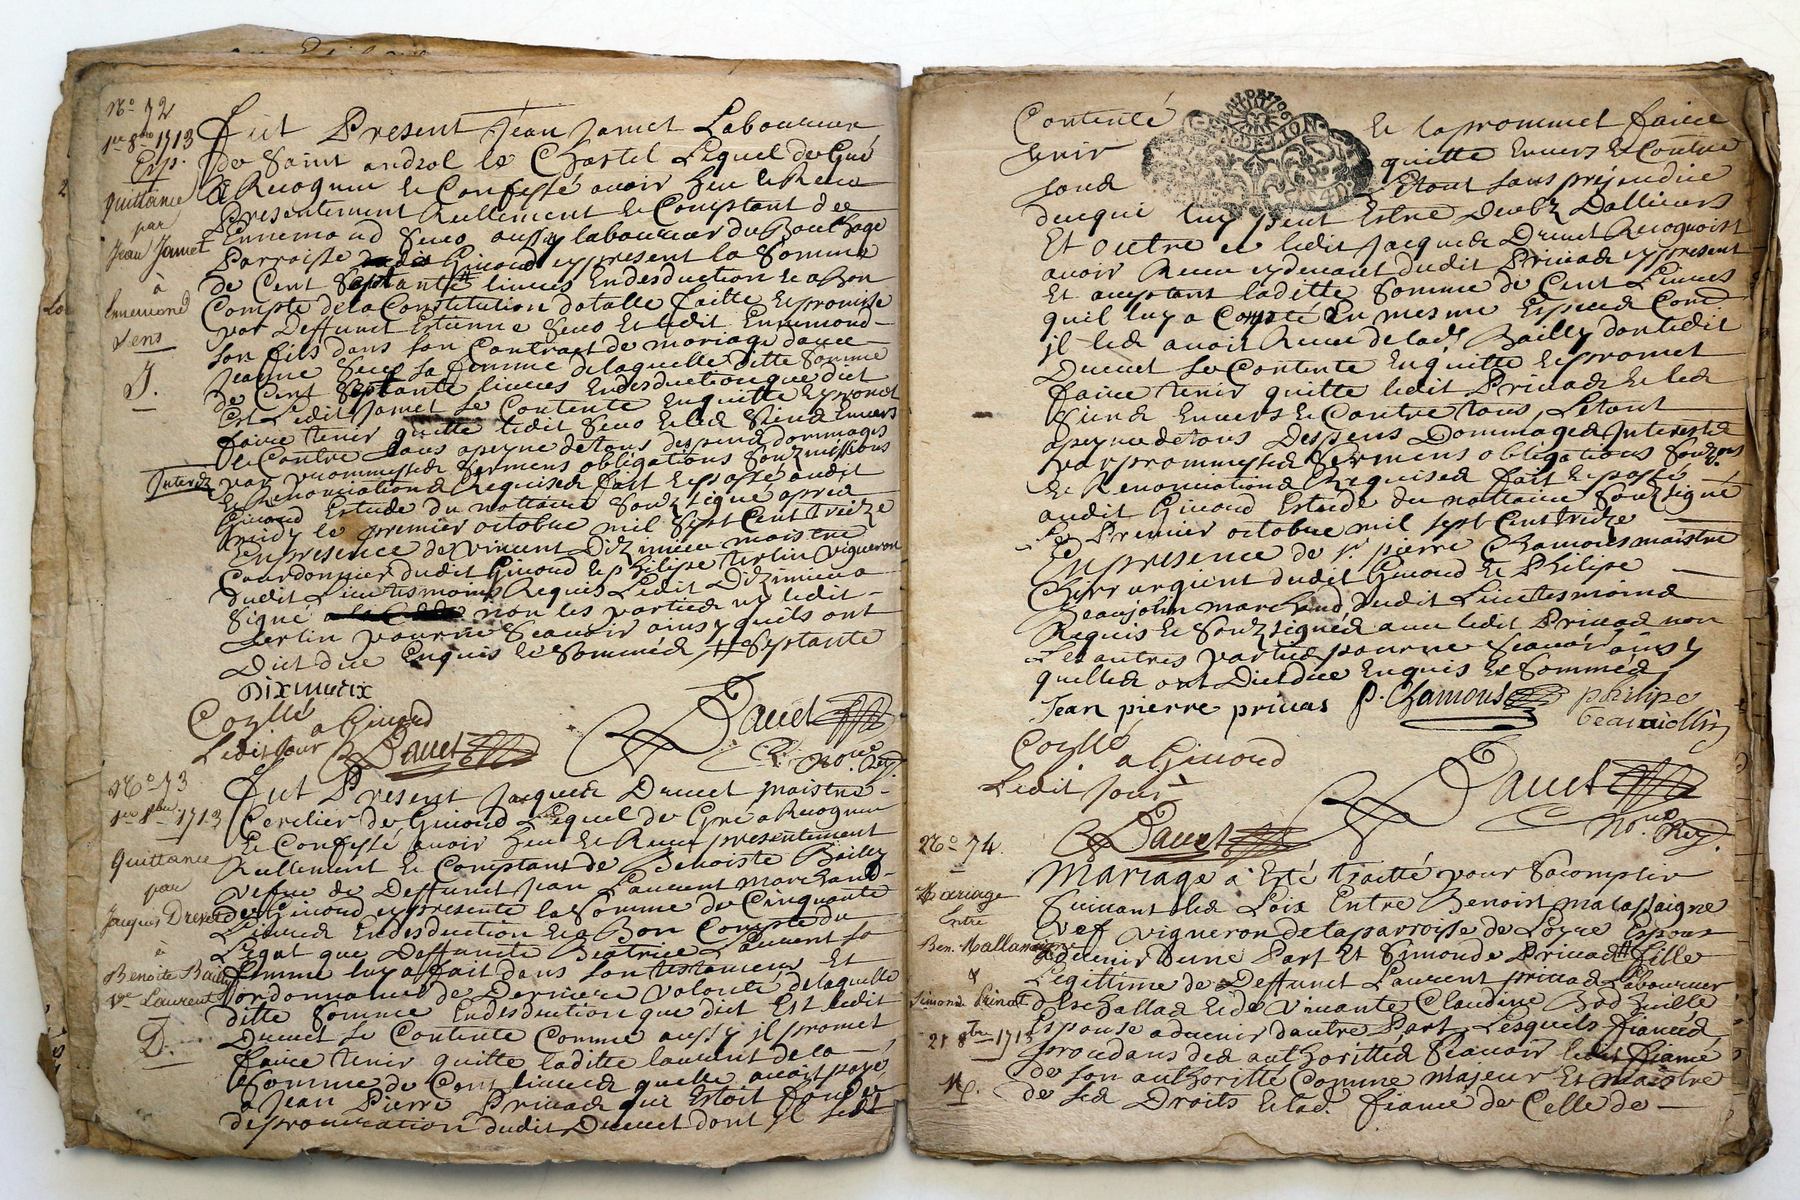 No 72
1er 8bre 1713
Exp.
quittance
par
Jean Jamet
à
Ennemond
Sens
J.
Fut Present Jean Jamet Laboureur
de Saint andeol le Chastel Lequel de Gré
a Recognu et Confessé avoir heu et Receu
Presentement Reellement et Comptant de
Ennemond Sens aussy laboureur du
Parroisse Givord present la Somme
de Cent Septante livres Endesduction et a Bon
Compte de la Constitution dotalle faitte et promise
par Deffunct Estienne Sens Et ledit Ennemond
son fils dans son Contract de mariage avec
Jeanne Sens sa femme de laquelle ditte Somme
de Cent Septante livres Endesduction que dict
Est Ledit Jamet se Contente En quitte et promet
faire tenir quitte ledit Sens et les Siens Envers
et Contre tous apeyne de tous despens dommages
Interez par promesses Sermens obligations Soubzmissions
et Renonciations Requises fait et passé audit
Givord Estude du nottaire Soubzsigné apres
midy le premier octobre mil Sept Cent treize
En presence de Vincent Diximieu maistre
Courdonnier dudit Givord et philipe terlin vigneron
dudit Lieu tesmoins Requis Ledit Diximieu a
Signé non les parties ny ledit
terlin pour ne Scavoir ainsy quils ont
Dict de ce Enquis et Sommés # Septante
Diximieix
Collé a Givord
Ledit Jour
Dauet
Dauet
Nore Roy.
No 73
1er 8bre 1713
Quittance
par
Jacques Drevet
à
Benoite Bailly
Vve Laurent
D.
Fut Present Jacques Drevet maistre
de Givord Lequel de Gré a Recognu
et Confessé avoir heu et Receu presentement
Reellement et Comptant de Benoiste Bailly
vefue de Deffunct Jean Laurent marchand
de Givord presente la Somme de Cinquante
Livres Endesduction et a Bon Compte du
Legat que Deffuncte Beatrice Laurent sa
femme luy a fait dans son testament Et
ordonnance de Derniere volonté de laquelle
ditte Somme Endesduction que dict Est ledit
Drevet se Contente Comme aussy il promet
faire tenir quitte laditte laurent de la
Somme de Cent livres quelle avoit payé
a Jean Pierre Privas qui Estoit fondé
de procuration dudit Drevet dont il se dit
Contenté Et la prommet faire
tenir quitte Envers et Contre
tous Estant sans prejudice
de ce qui luy peut Estre Deub Dallieurs
Et outre ce ledit Jacques Drevet Recognoist
avoir Receu cy devant dudit Privas present
Et acceptant laditte Somme de Cent Livres
quil luy a Compté En mesme Espece Come
il les avoit Receu de lad. Bailly dont ledit
Drevet se Contente En quitte et promet
faire tenir quitte ledit Privas et les
Siens Envers et Contre tous, Le tout
apeyne de tous Despens Dommages Interests
par prommesses Sermens obligations Soubzons
et Renonciations Requises fait et passé
audit Givord Estude du nottaire Soubzsigné
Le Premier octobre mil sept Cent treize
En presence de Sr pierre Chamous maistre
Chirurgient dudit Givord et Philipe
Beaujolin marchand dudit Lieu tesmoins
Requis et Soubzsignés avec ledit Privas non
Les autres parties pour ne Scavoir ainsy
quelles ont Dict de ce Enquis et Sommés
Jean pierre privas P. Chamous philipe
beauiollin
Collé a Givord
Ledit Jour
Dauet
Dauet
Nore Roy.
No 74.
Mariage
Entre
Ben. Mallassaigne
&
Simonde Privat
21 8bre 1713
M.
Mariage a Esté traitté pour Sacomplir
suivant les Loix Entre Benoist malassaigne
vef vigneron de la parroisse de Loyre Espoux
advenir D'une Part Et Simonde Privas # fille
Legittime de Deffunct Laurent privas Laboureur
d'Eschallas et de Vivante Claudine
Espouse advenir d'autre Part, Lesquels fiancés
procedans des authorittés Scavoir ledit fiancé
de son authoritté Comme majeur Et maistre
de ses Droits et lad. fiancé de Celle de